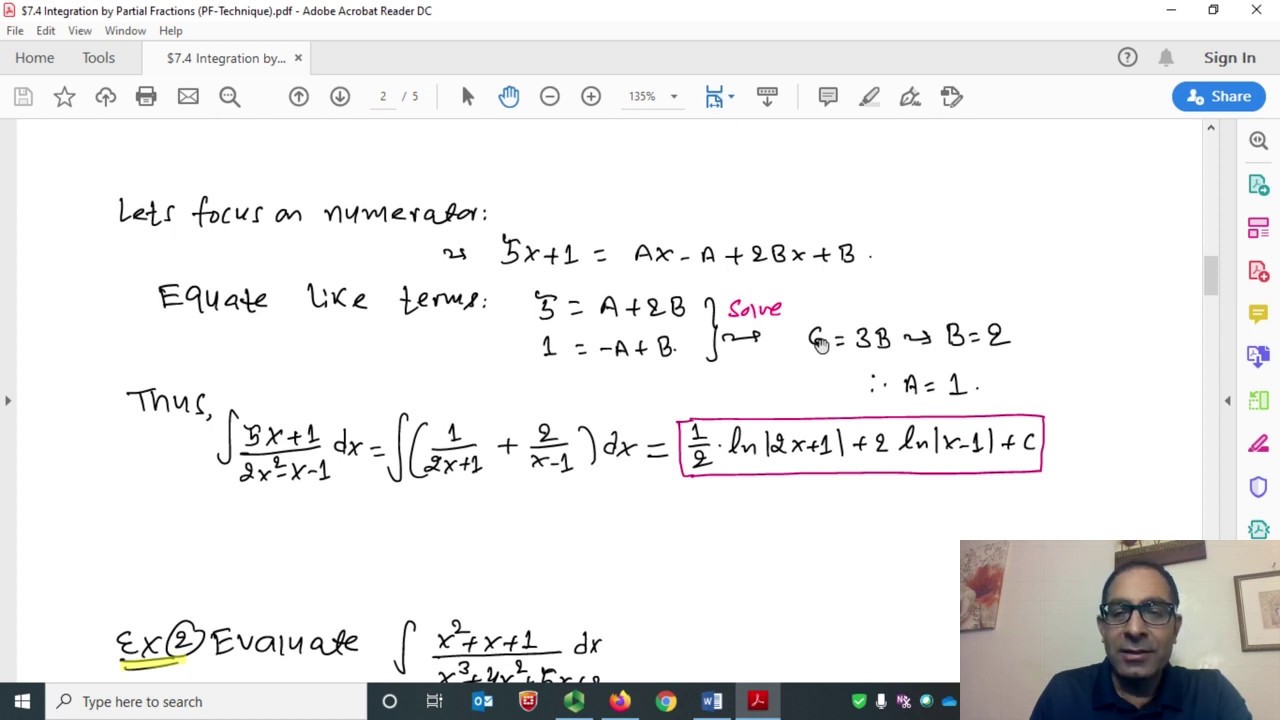 $7.4 Integration by Partial Fractions (PF-Technique).pdf - Adobe Acrobat Reader DC
File Edit View Window Help
Home Tools $7.4 Integration by... × Sign In
2 / 5 135% Share
Lets focus on numerator:
5x+1 = Ax - A + 2Bx + B.
Equate like terms: 5 = A + 2B Solve
1 = -A + B. 6 = 3B ⇝ B = 2
∴ A = 1.
Thus,
∫ (5x+1)/(2x²-x-1) dx = ∫ ( 1/(2x+1) + 2/(x-1) ) dx = 1/2 · ln|2x+1| + 2 ln|x-1| + C
Ex 2 Evaluate ∫ (x²+x+1)/(x³+4x²+5x+2) dx
Type here to search